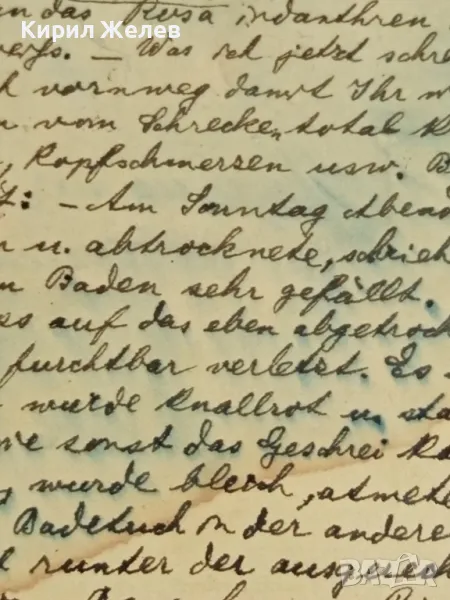 Кирил Желев
an das Rosa indanthren
weiss. – Was ich jetzt schre
ch vornweg damit Ihr
n vom Schrecke, total K
, Kopfschmerzen usw. B
t: – Am Sonntag Abend
n u. abtrocknete, schrieh
m Baden sehr gefällt.
ss auf das eben abgetrock
furchtbar verletzt. Es
wurde knallrot u. sta
wie sonst das Geschrei Ka
wurde bleich, atmete
Badetuch in der andere
l runter der ausgerech
BAZAR